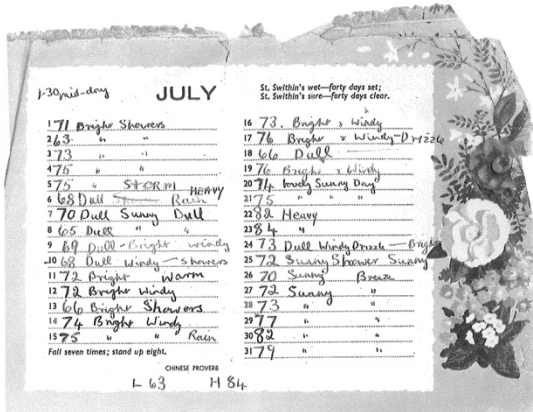 1-30 mid-day
JULY
St. Swithin's wet—forty days set;
St. Swithin's sure—forty days clear.
1 71 Bright Showers
2 63 " "
3 73 " "
4 75 " "
5 75 " STORM
6 68 Dull Rain HEAVY
7 70 Dull Sunny Dull
8 65 Dull " "
9 69 Dull-Bright windy
10 68 Dull Windy - showers
11 72 Bright Warm
12 72 Bright Windy
13 66 Bright Showers
14 74 Bright Windy
15 75 " " Rain
Fall seven times; stand up eight.
CHINESE PROVERB
16 73. Bright & Windy
17 76 Bright & Windy-Drizzle
18 66 Dull
19 76 Bright & Windy
20 74 lovely Sunny Day
21 75 " "
22 82 Heavy
23 84 "
24 73 Dull Windy Drizzle - Bright
25 72 Sunny Shower Sunny
26 70 Sunny Breeze
27 72 Sunny "
28 73 " "
29 77 " "
30 82 " "
31 79 " "
L 63 H 84